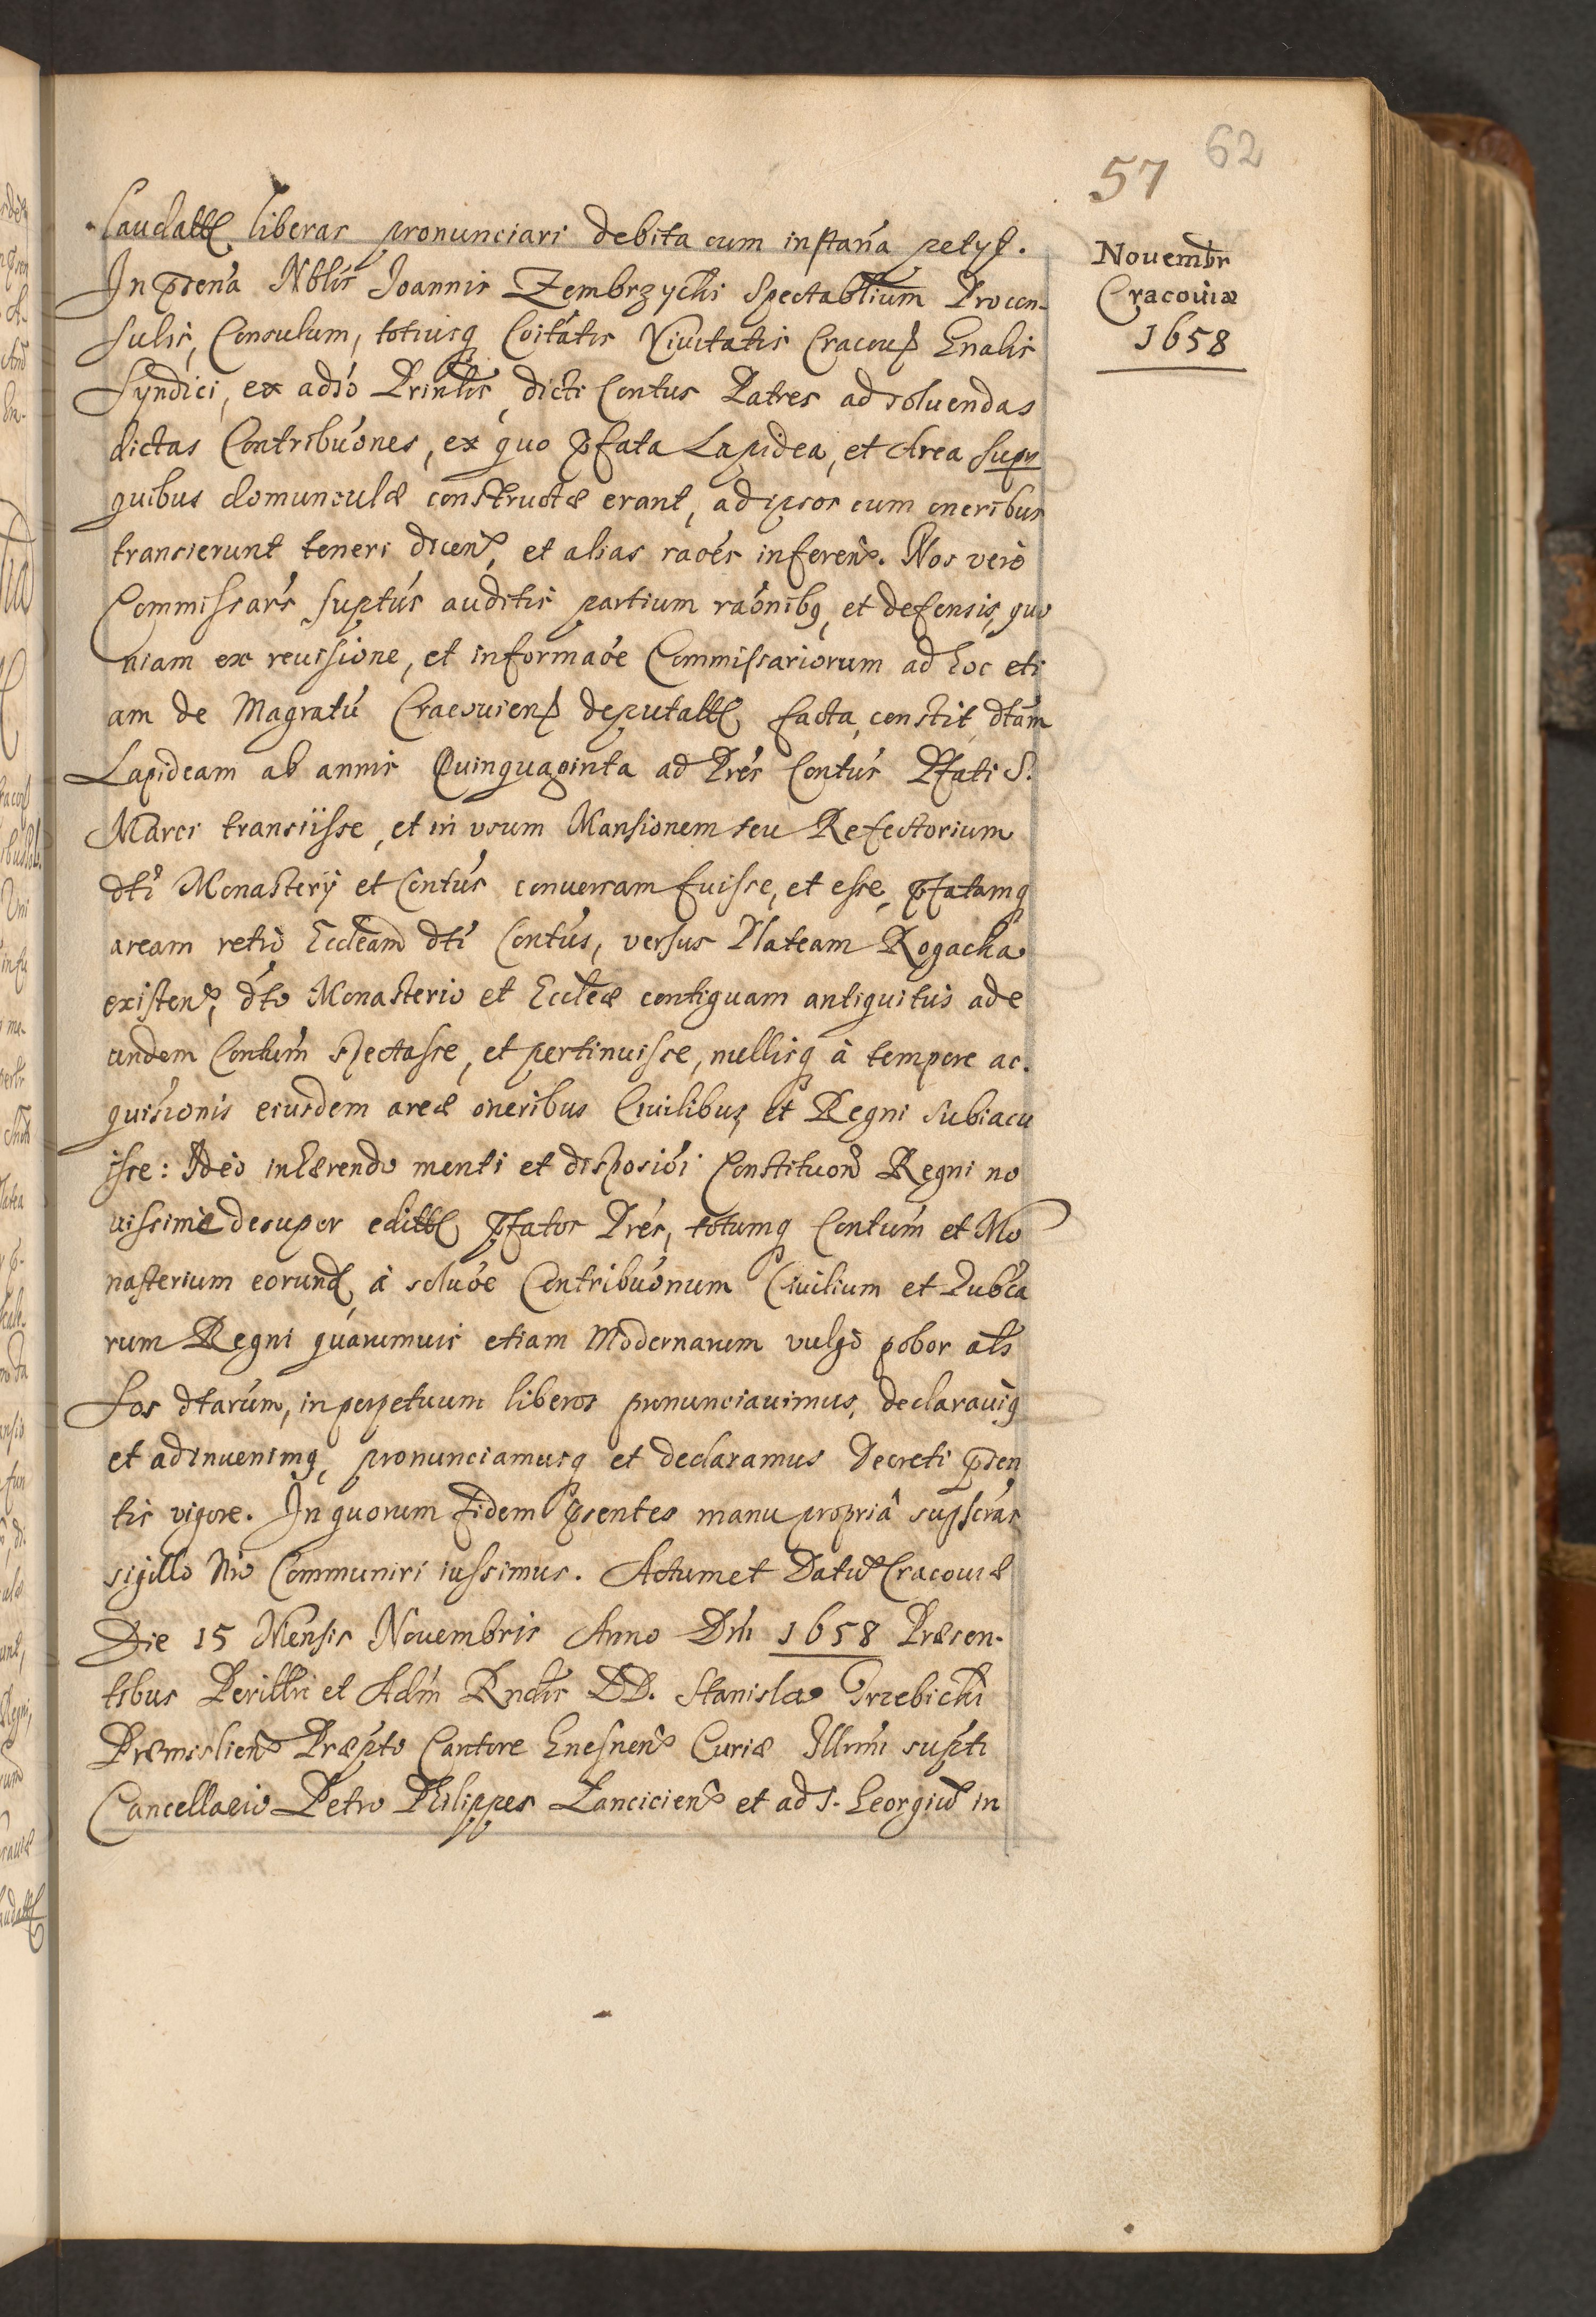 57 62
Nouembr
Cracouiæ
1658
laudatt liberas pronunciari debita cum instána petÿt.
In pṡena Nblis Joannis Zembrzychi Spectabłium Procon-
sulis, Consulum, totiusq Coitátis Ciuitatis Cracou Gnalis
Syndici, ex adiò Prinłis, dicti Contus Patres ad soluendas
dictas Contribúones, ex quo pfata Lapidea, et Area supr
quibus domunculæ constructæ erant, ad ipsos cum oneribus
transierunt teneri dicen, et alias raóes inferen. Nos verò
Commissarś suptús auditis partium raónibq, et defensis, quo
niam ex reuisione, et informaóe Commissariorum ad hoc eti
am de Magratú Cracouien deputatt facta, constit dtám
Lapideam ab annis Quinquaginta ad Prés Contús Pfati S.
Marci transiisse, et in vsum Mansionem seu Refectorium
dti Monasterÿ et Contús conuersam fuisse, et esse, pfatamq
aream retrò Eccleam dti Contús, versus Plateam Rogacka
existen, dto Monasterio et Eccleæ contiguam antiquitus ad e
undem Contum spectasse, et pertinuisse, nullisq à tempore ac.
quisionis eiusdem areæ oneribus Ciuilibus, et Regni subiacu
isse: Ideò inhærendo menti et disposiói Constituon Regni no
uissimè desuper editt pfatos Prés, totumq Contum et Mo
nasterium eorund, à soluóe Contribúonum Ciuilium et Pubca
rum Regni quarumuis etiam Modernarum vulgò pobor ałs
Sos dtarum, in perpetuum liberos pronunciauimus, declarauiq
et adinuenimq, pronunciamusq et declaramus Decreti psen
tis vigore. In quorum fidem psentes manu propriâ supscrás
sigillo Nro Communiri iussimus. Actum et Datu Cracouiæ
Die 15 Mensis Nouembris Anno Dni 1658 Præsen-
tibus Perilłri et Adm Rndis DD. Stanislao Trzebicki
Præmislien Præpto Cantore Gnesnen Curiæ Illmi supti
Cancellario Petro Philippes Lancicien et ad S. Georgiu in